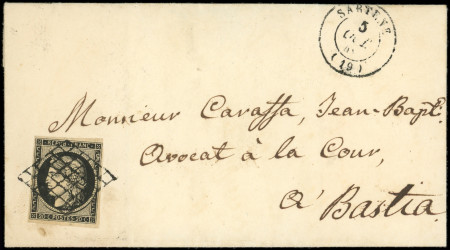 SARTENE
5
OCT.
(19)
Monsieur Caraffa, Jean-Bapt.
Avocat à la Cour,
à Bastia
REPUB. FRANC.
20 C. POSTES 20 C.